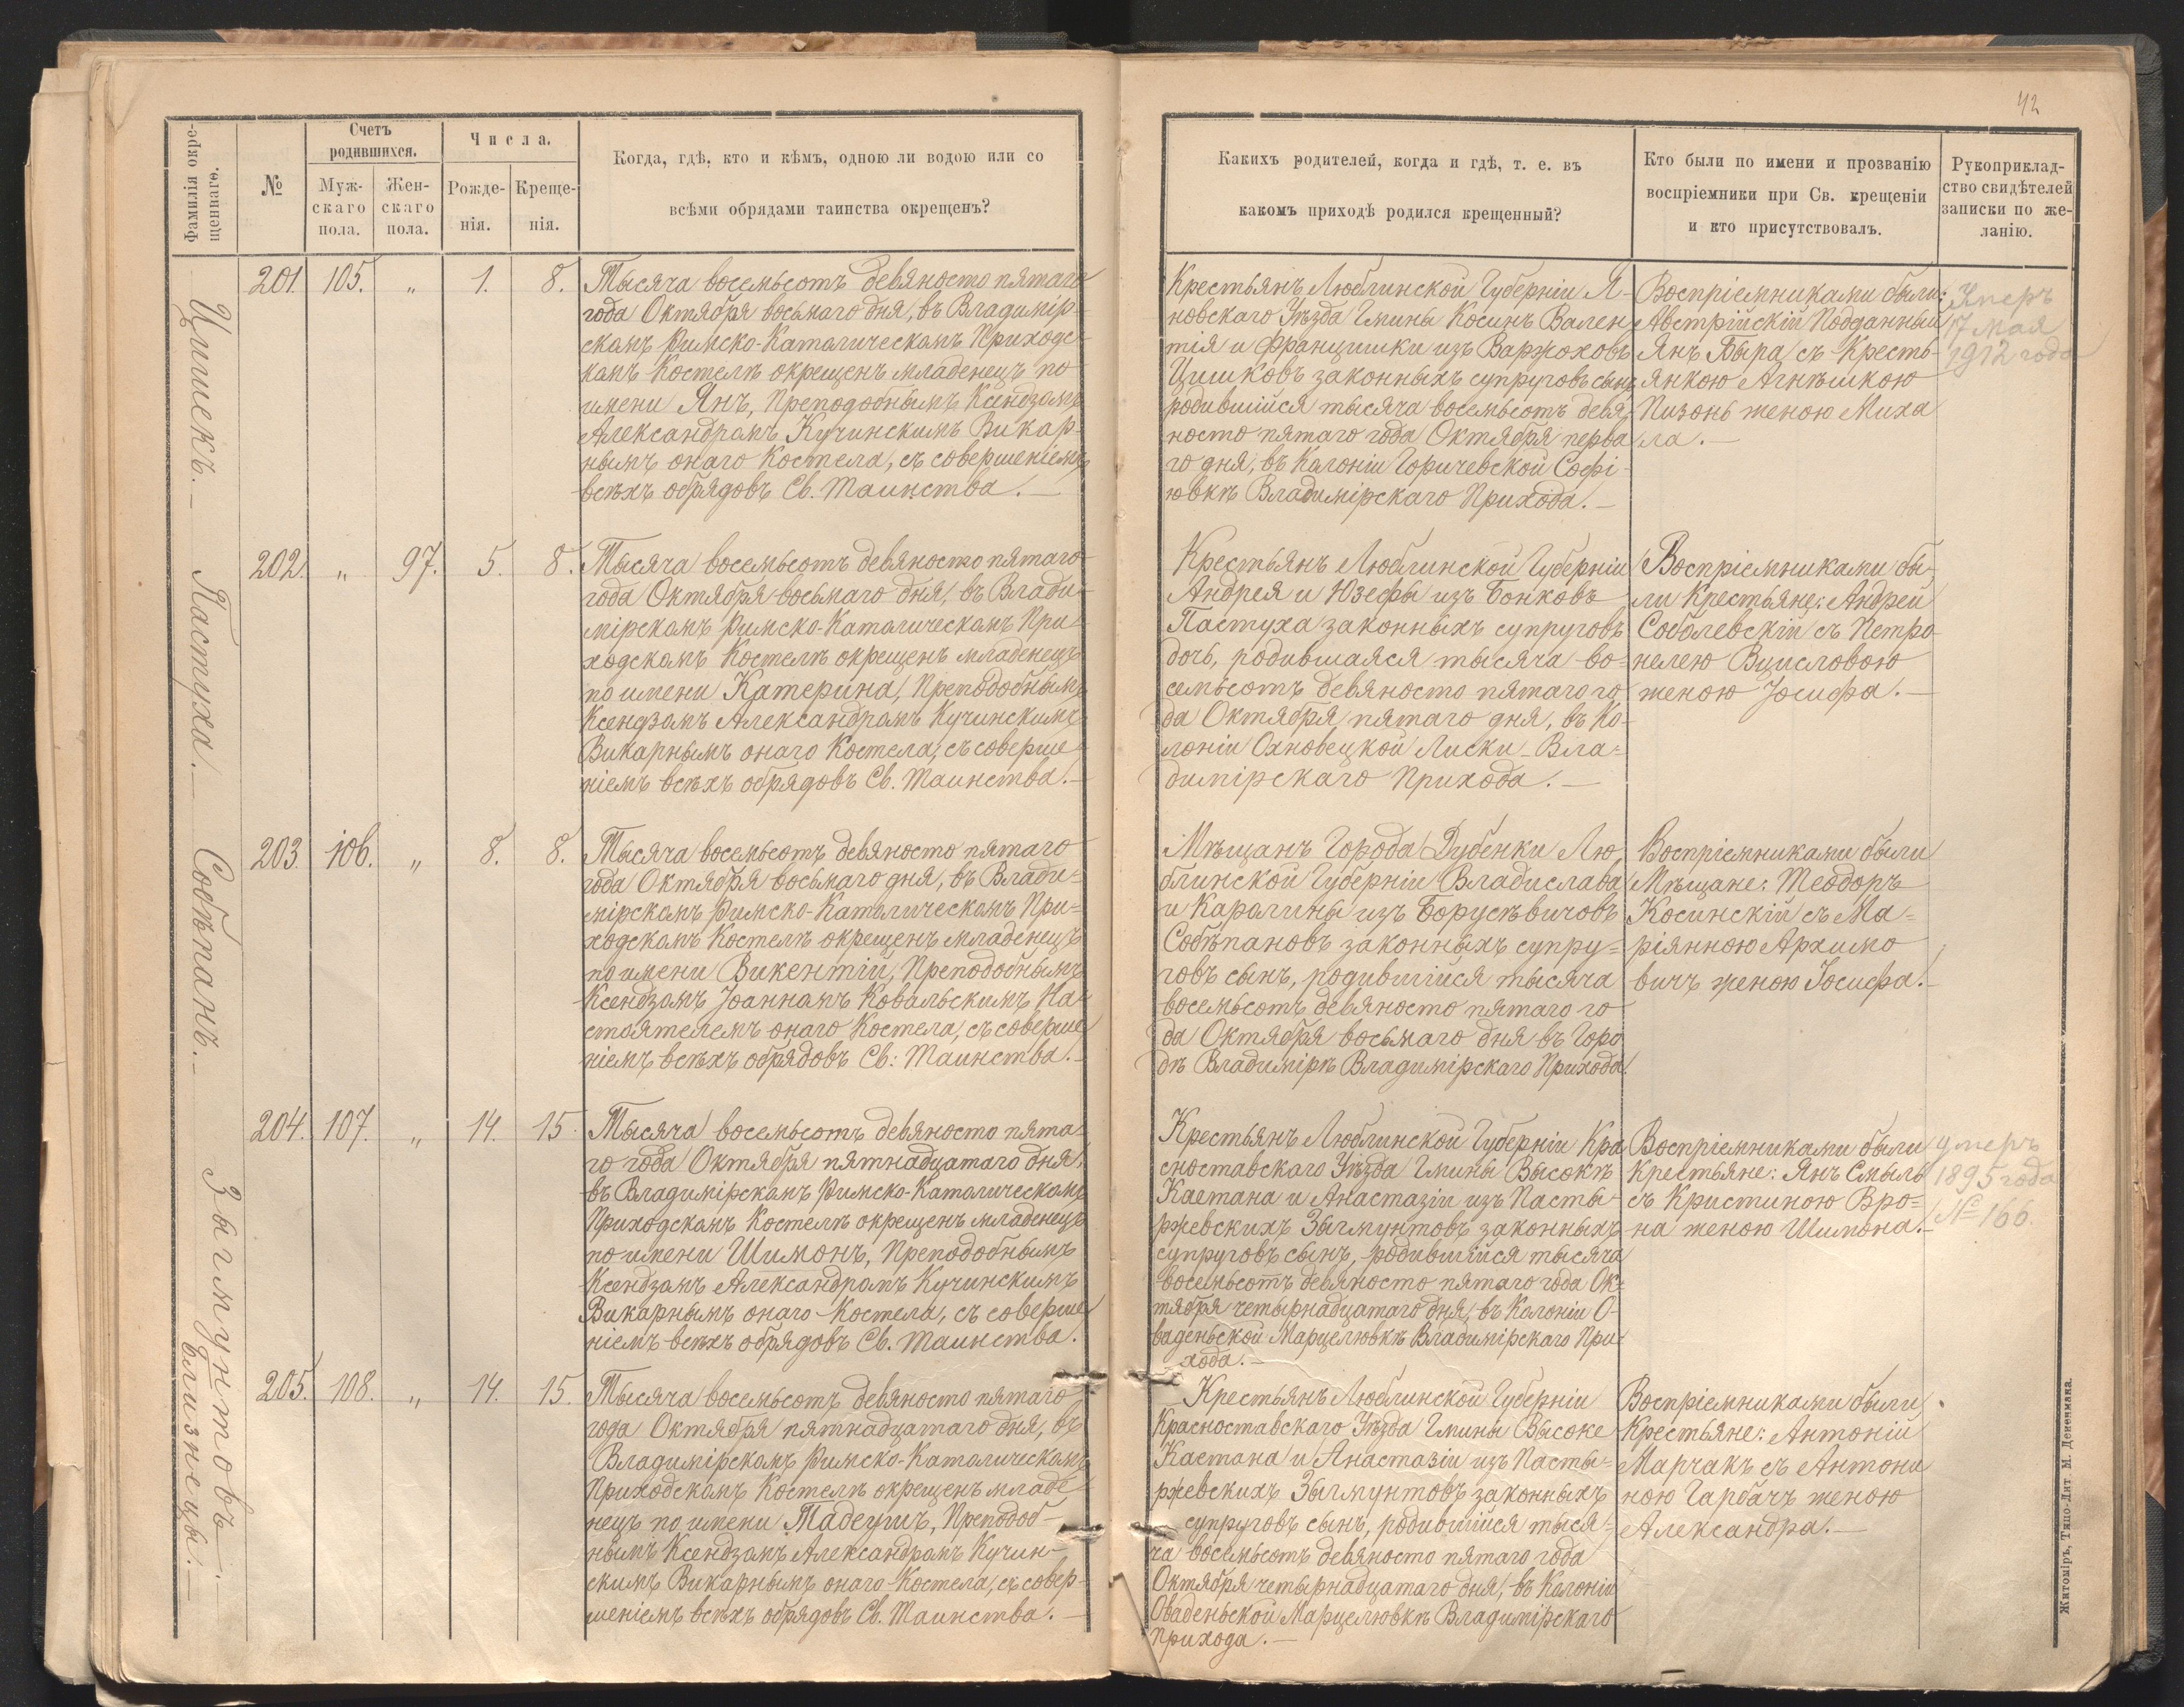 42
Фамилія окре-
щеннаго.
№
Счетъ
родившихся.
Муж-
скаго
пола.
Жен-
скаго
пола.
Числа.
Рожде-
нія.
Креще-
нія.
Когда, гдѣ, кто и кѣмъ, одною ли водою или со
всѣми обрядами таинства окрещенъ?
Какихъ родителей, когда и гдѣ, т. е. въ
какомъ приходѣ родился крещенный?
Кто были по имени и прозванію
воспріемники при Св. крещеніи
и кто присутствовалъ.
Рукоприклад-
ство свидѣтелей
записки по же-
ланію.
Цишекъ.—
201. 105. „ 1. 8.
Тысяча восемьсотъ девяносто пятаго
года Октября восьмаго дня, въ Владимір-
скомъ Римско-Католическомъ Приходс-
комъ Костелѣ окрещенъ младенецъ по
имени Янъ, Преподобнымъ Ксендзомъ
Александромъ Кучинскимъ Викар-
нымъ онаго Костела, съ совершеніемъ
всѣхъ обрядовъ Св. Таинства.—
Крестьянъ Люблинской Губерніи Я-
новскаго Уѣзда Гмины Косинъ Вален
тія и Францишки изъ Варжоховъ
Цишковъ законныхъ супруговъ сынъ
родившійся тысяча восемьсотъ девя-
носто пятаго года Октября перва
го дня, въ Колоніи Горичевской Софі-
ювкѣ Владимірскаго Прихода.—
Воспріемниками были:
Австрійскій Подданный
Янъ Быра съ Кресть-
янкою Агнѣшкою
Пизонь женою Миха
ла.—
Умеръ
17 мая
1912 года
Пастуха.—
202. „ 97. 5. 8.
Тысяча восемьсотъ девяносто пятаго
года Октября восьмаго дня, въ Влади-
мірскомъ Римско-Католическомъ При
ходскомъ Костелѣ окрещенъ младенецъ
по имени Катерина, Преподобнымъ
Ксендзомъ Александромъ Кучинскимъ
Викарнымъ онаго Костела, съ соверше
ніемъ всѣхъ обрядовъ Св. Таинства.—
Крестьянъ Люблинской Губерніи
Андрея и Юзефы изъ Бонковъ
Пастуха законныхъ супруговъ
дочь, родившаяся тысяча во=
семьсотъ девяносто пятаго го
да Октября пятаго дня, въ Ко-
лоніи Охновецкой Лиски Вла=
димірскаго Прихода.—
Воспріемниками бы-
ли Крестьяне: Андрей
Соболевскій съ Петро-
нелею Вцисловою
женою Іосифа.—
Собѣпанъ.—
203. 106. „ 8. 8.
Тысяча восемьсотъ девяносто пятаго
года Октября восьмаго дня, въ Влади=
мірскомъ Римско-Католическомъ При=
ходскомъ Костелѣ окрещенъ младенецъ
по имени Викентій, Преподобнымъ
Ксендзомъ Іоанномъ Ковальскимъ На-
стоятелемъ онаго Костела, съ соверше
ніемъ всѣхъ обрядовъ Св: Таинства.—
Мѣщанъ Города Дубенки Лю
блинской Губерніи Владислава
и Каролины изъ Борусѣвичовъ
Собѣпановъ законныхъ супру=
говъ сынъ, родившійся тысяча
восемьсотъ девяносто пятаго го
да Октября восьмаго дня въ Горо
дѣ Владимірѣ Владимірскаго Прихода.
Воспріемниками были
Мѣщане: Теодоръ
Косинскій съ Ма=
ріянною Архимо
вичъ женою Іосифа.—
Загмунтовъ.—
204. 107. „ 14. 15.
Тысяча восемьсотъ девяносто пята-
го года Октября пятнадцатаго дня,
въ Владимірскомъ Римско-Католическомъ
Приходскомъ Костелѣ окрещенъ младенецъ
по имени Шимонъ, Преподобнымъ
Ксендзомъ Александромъ Кучинскимъ
Викарнымъ онаго Костела, съ соверше
ніемъ всѣхъ обрядовъ Св. Таинства.
Крестьянъ Люблинской Губерніи Кра
сноставскаго Уѣзда Гмины Высокѣ
Каетана и Анастазіи изъ Пасты-
ржевскихъ Зыгмунтовъ законныхъ
супруговъ сынъ, родившійся тысяча
восемьсотъ девяносто пятаго года Ок=
тября четырнадцатаго дня, въ Колоніи О-
ваденьской Марцелювкѣ Владимірскаго При
хода.—
Воспріемниками были
Крестьяне: Янъ Смыль
съ Кристиною Вро=
на женою Шимона.—
Умеръ
1895 года
№ 166.
близнецы.—
205. 108. „ 14. 15.
Тысяча восемьсотъ девяносто пятаго
года Октября пятнадцатаго дня, въ
Владимірскомъ Римско-Католическомъ
Приходскомъ Костелѣ окрещенъ младе
нецъ по имени Тадеушъ, Преподоб-
нымъ Ксендзомъ Александромъ Кучин-
скимъ Викарнымъ онаго Костела, съ совер-
шеніемъ всѣхъ обрядовъ Св. Таинства.—
Крестьянъ Люблинской Губерніи
Красноставскаго Уѣзда Гмины Высоке
Каетана и Анастазіи изъ Пасты=
ржевскихъ Зыгмунтовъ законныхъ
супруговъ сынъ, родившійся тыся-
ча восемьсотъ девяносто пятаго года
Октября четырнадцатаго дня, въ Колоніи
Оваденьской Марцелювкѣ Владимірскаго
Прихода.—
Воспріемниками были
Крестьяне: Антоній
Марчакъ съ Антони
ною Гарбачъ женою
Александра.—
Житоміръ, Типо-Лит. М. Дененмана.